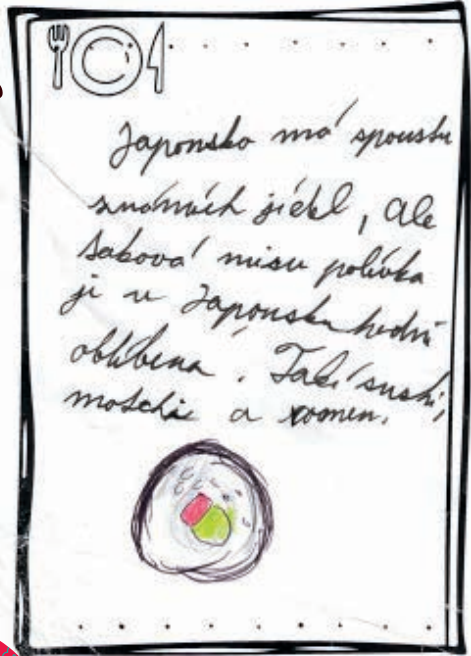 Japonsko má spoustu
známích jiédel, ale
taková misu polívka
je v Japonsku hodně
oblíbena. Také sushi,
motchi a ramen.